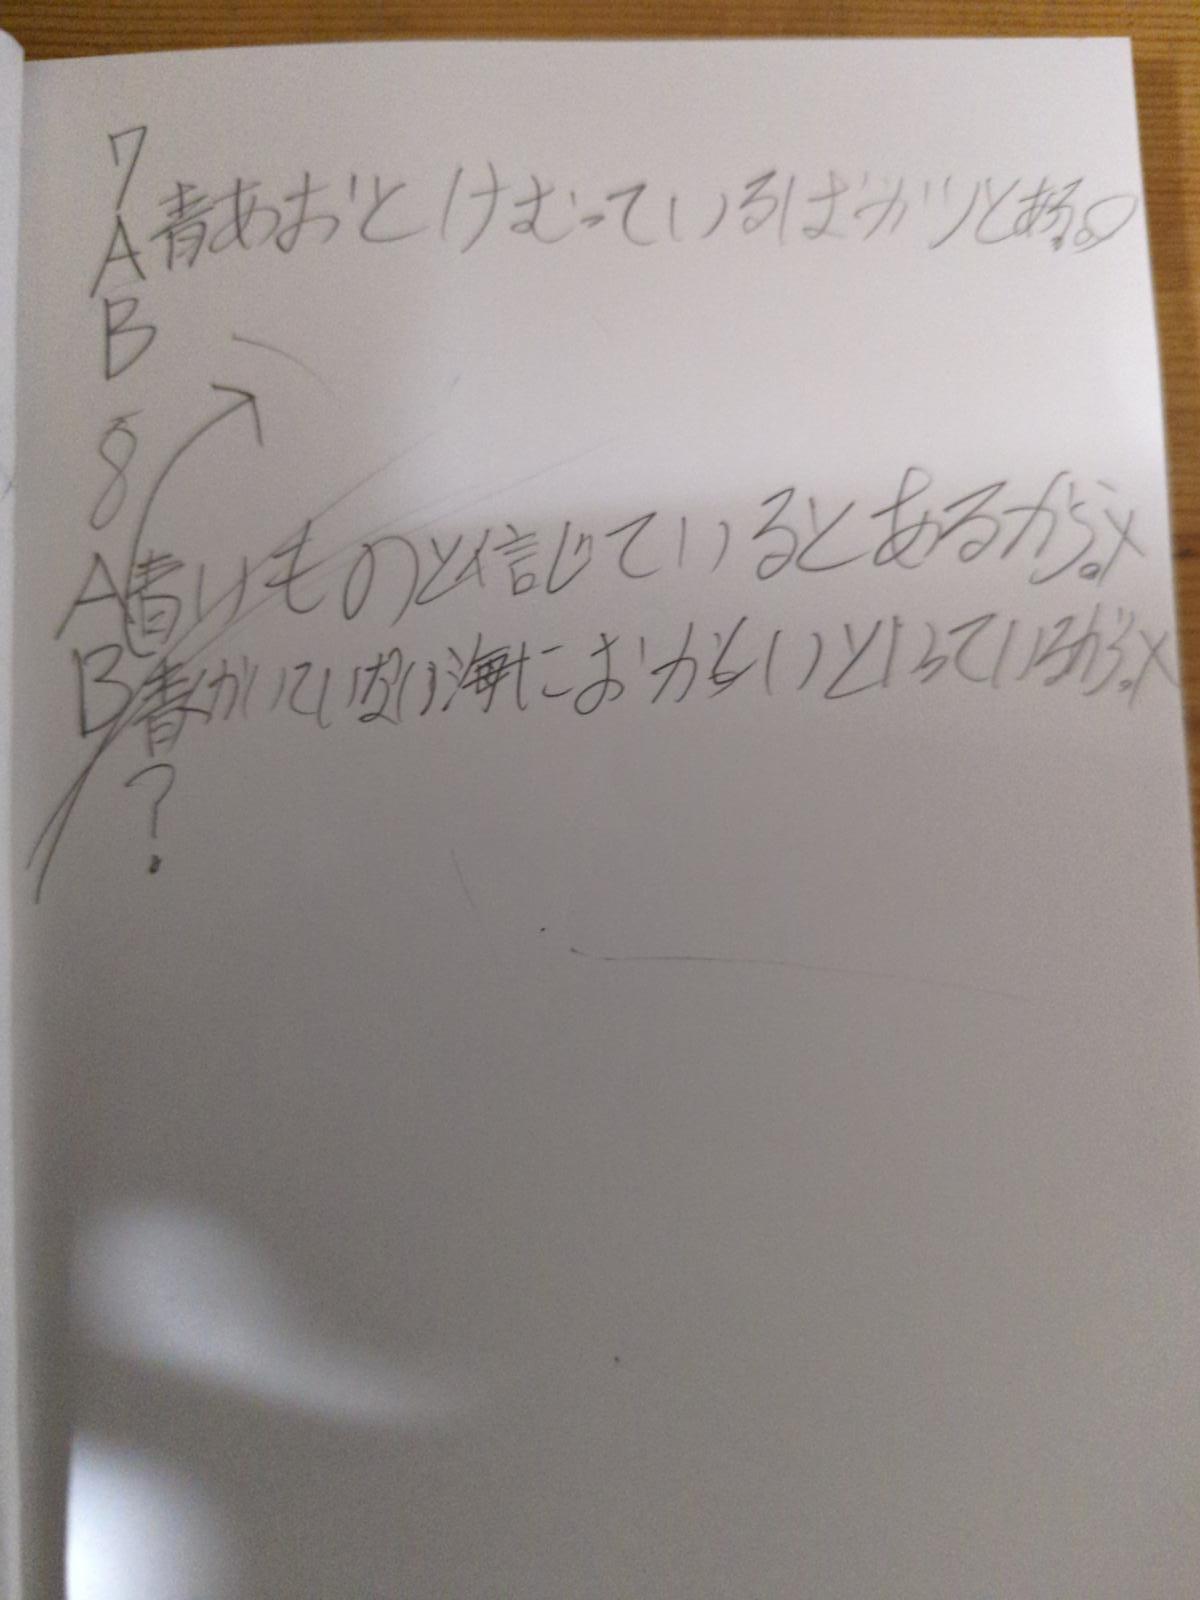 7
A 青あおとけむっているばかりとある。
B
8
A 青いものと信じているとあるから。×
B 青くかいていない海におかしいといっているから。×
?